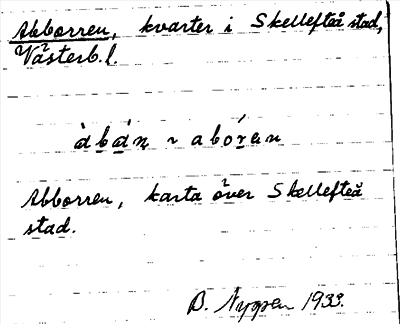 Abborren, kvarter i Skellefteå stad,
Västerb. l.
àbán ~ abóren
Abborren, karta över Skellefteå
stad.
B. Nygren 1933.